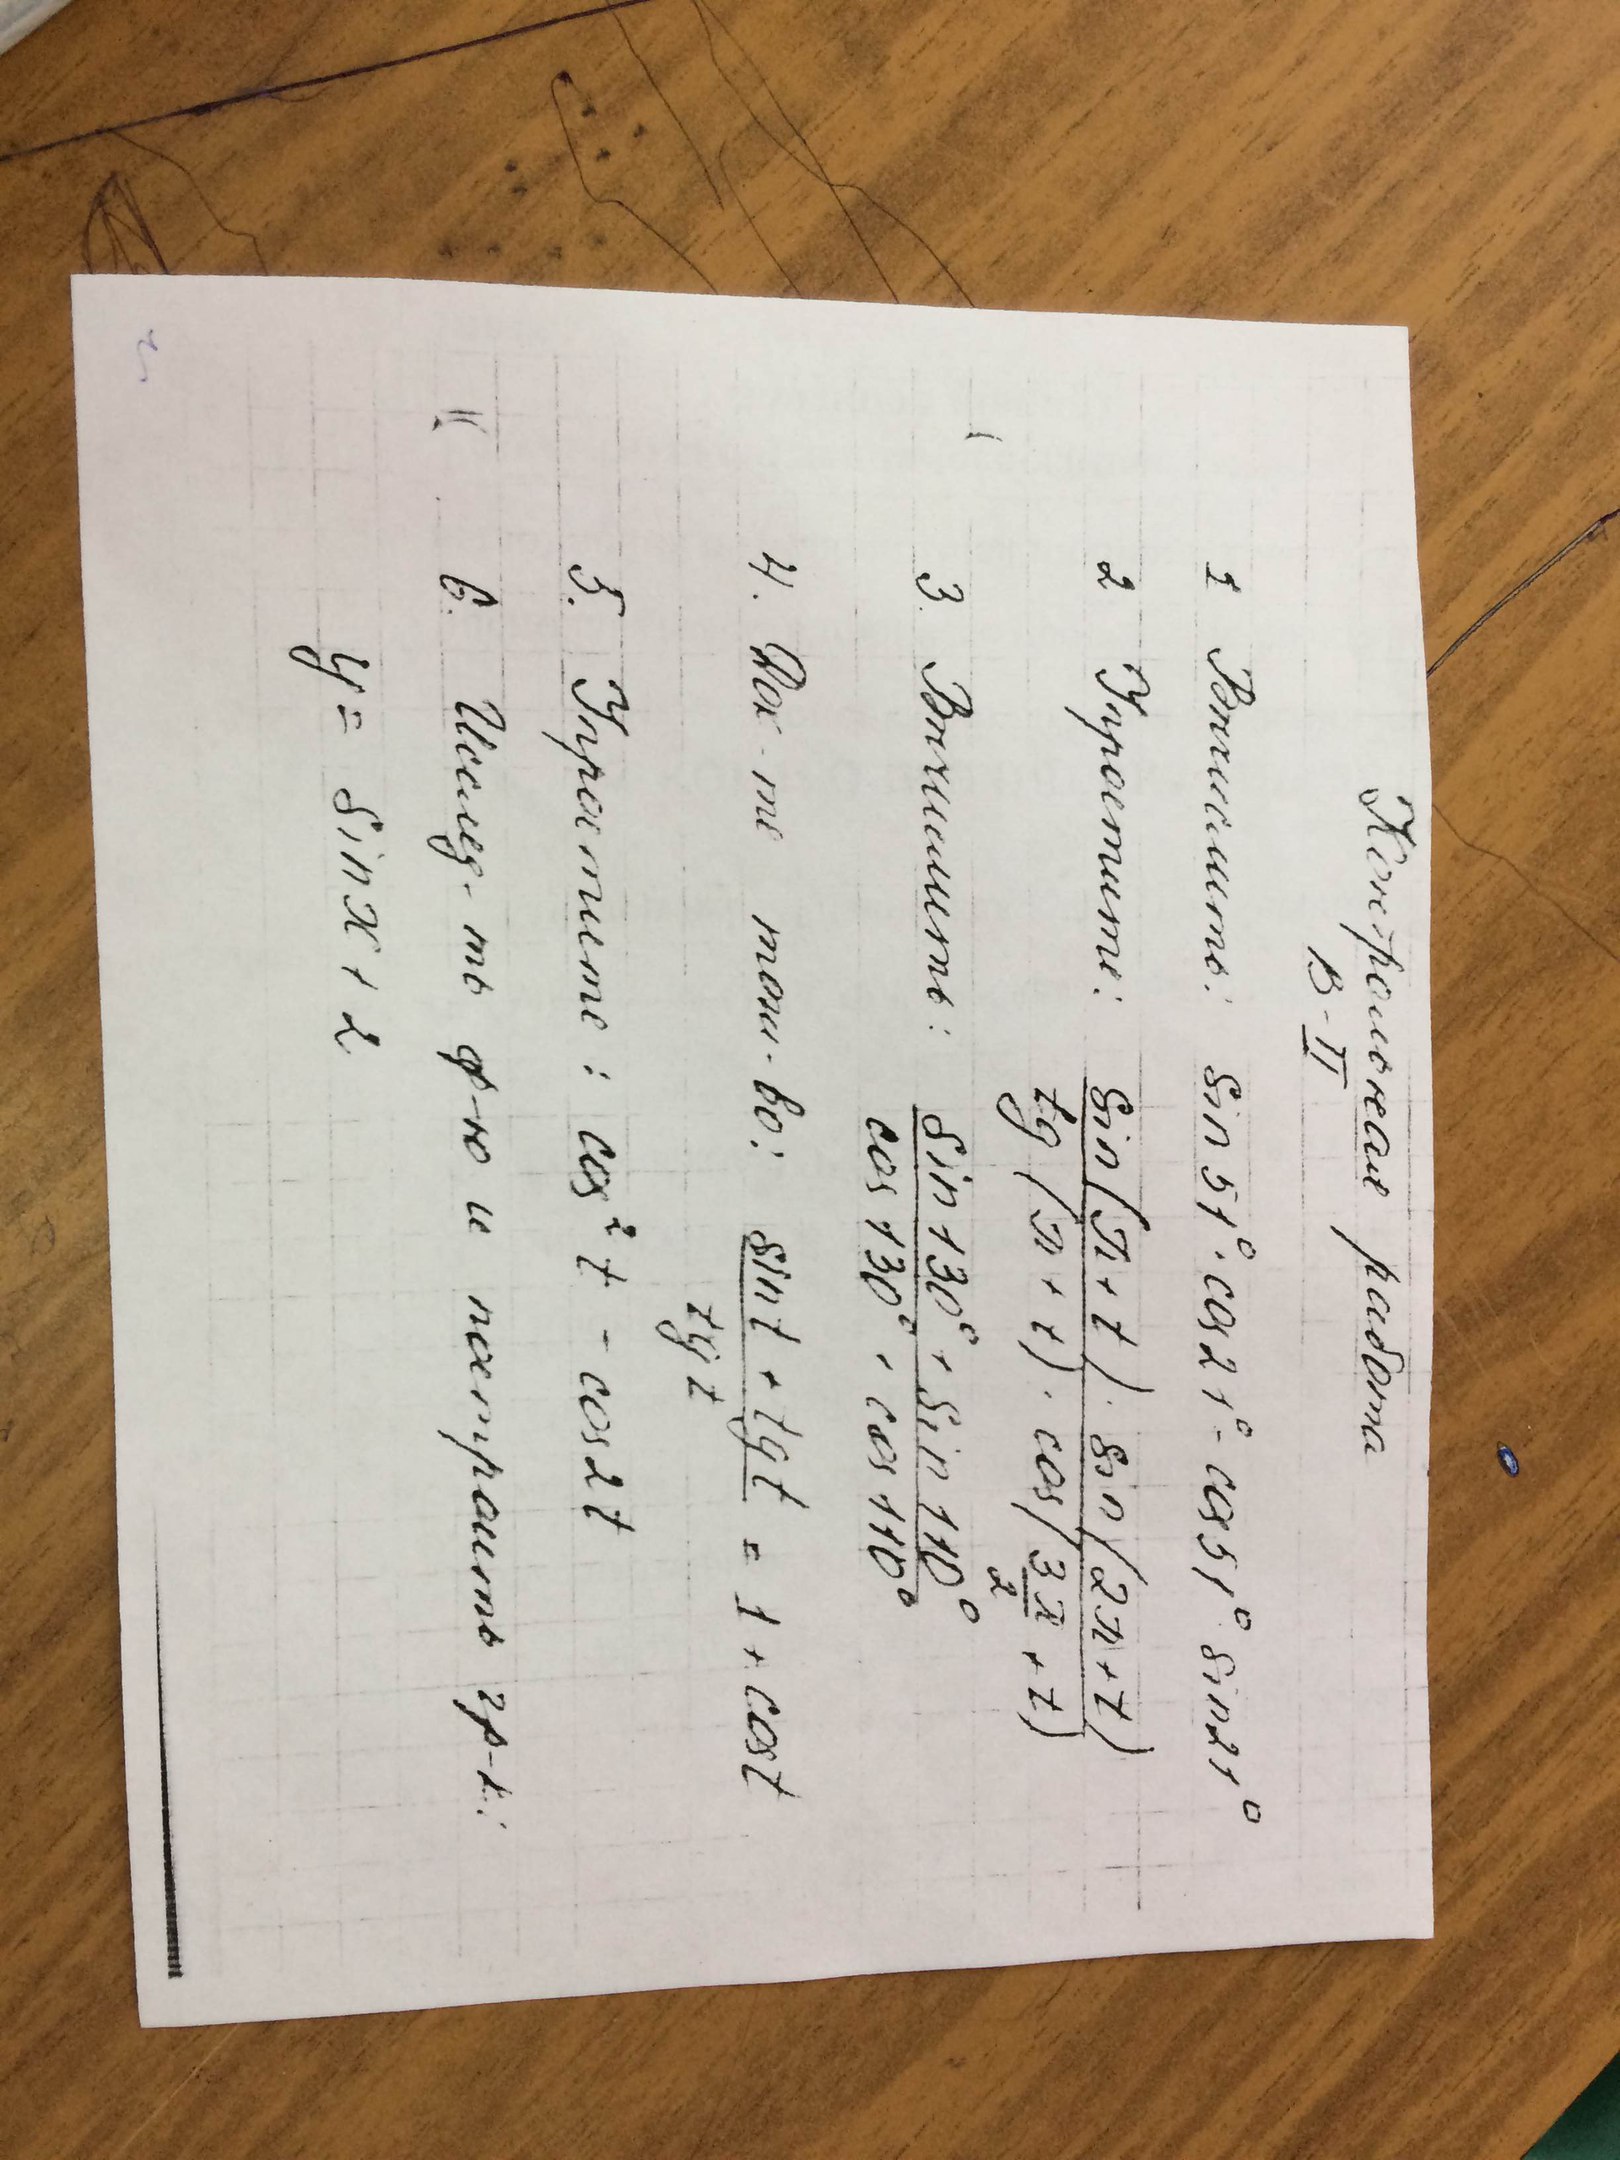 Контрольная работа
В-II
1 Вычислить: sin 51° · cos 21° - cos 51° · sin 21°
2 Упростите: sin(π + t) · sin(2π + t)
tg(π + t) · cos(3π/2 + t)
3. Вычислить: sin 130° + sin 110°
cos 130° + cos 110°
4. Док-те тож-во: sin t + tg t = 1 + cos t
tg t
5. Упростите: cos² t - cos 2t
6. Исслед-ть ф-ю и построить гр-к:
y = sin x + 2